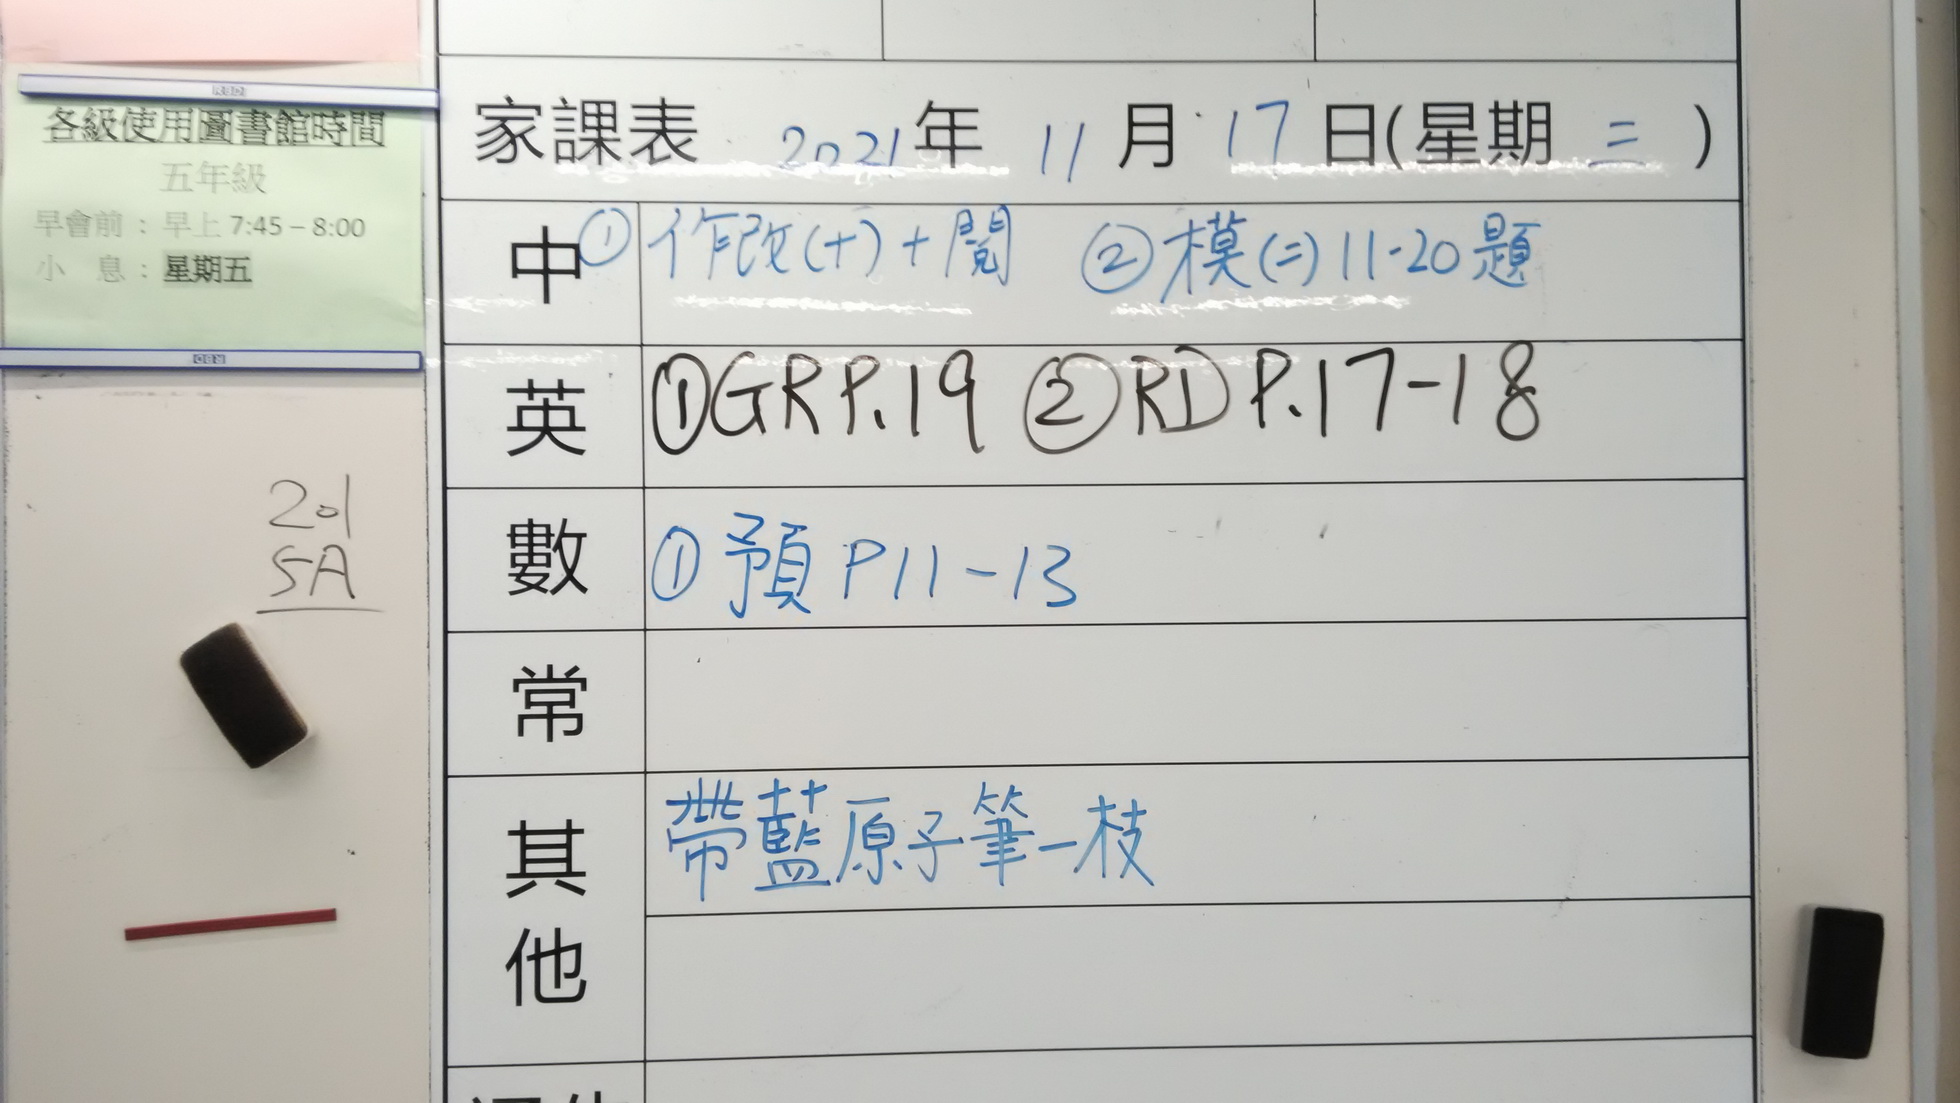 各級使用圖書館時間
五年級
早會前：早上 7:45 – 8:00
小 息：星期五
201
5A
家課表 2021年 11月 17日(星期 三 )
中 ①作改(十)+閱 ②模(二)11-20題
英 ①GR P.19 ②RD P.17-18
數 ①預 P11-13
常
其他 帶藍原子筆一枝